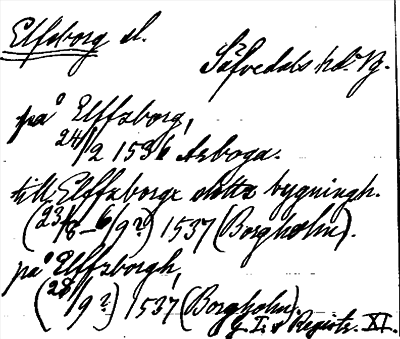 Elfsborg sl.
Säfvedals hd. Vg.
på Elffzborg,
24/2 1536 Arboga.
till Elffzborgx slotts bygningh.
(23/8–6/9?) 1537 (Borgholm).
på Elffzborgh,
(28/9?) 1537 (Borgholm).
G. I:s Registr. XI.